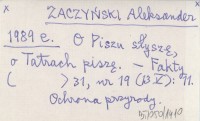 ZACZYŃSKI Aleksander
1989 e. O Piszu słyszę,
o Tatrach piszę. – Fakty
( ) 31, nr 19 (13 V): 11.
Ochrona przyrody.